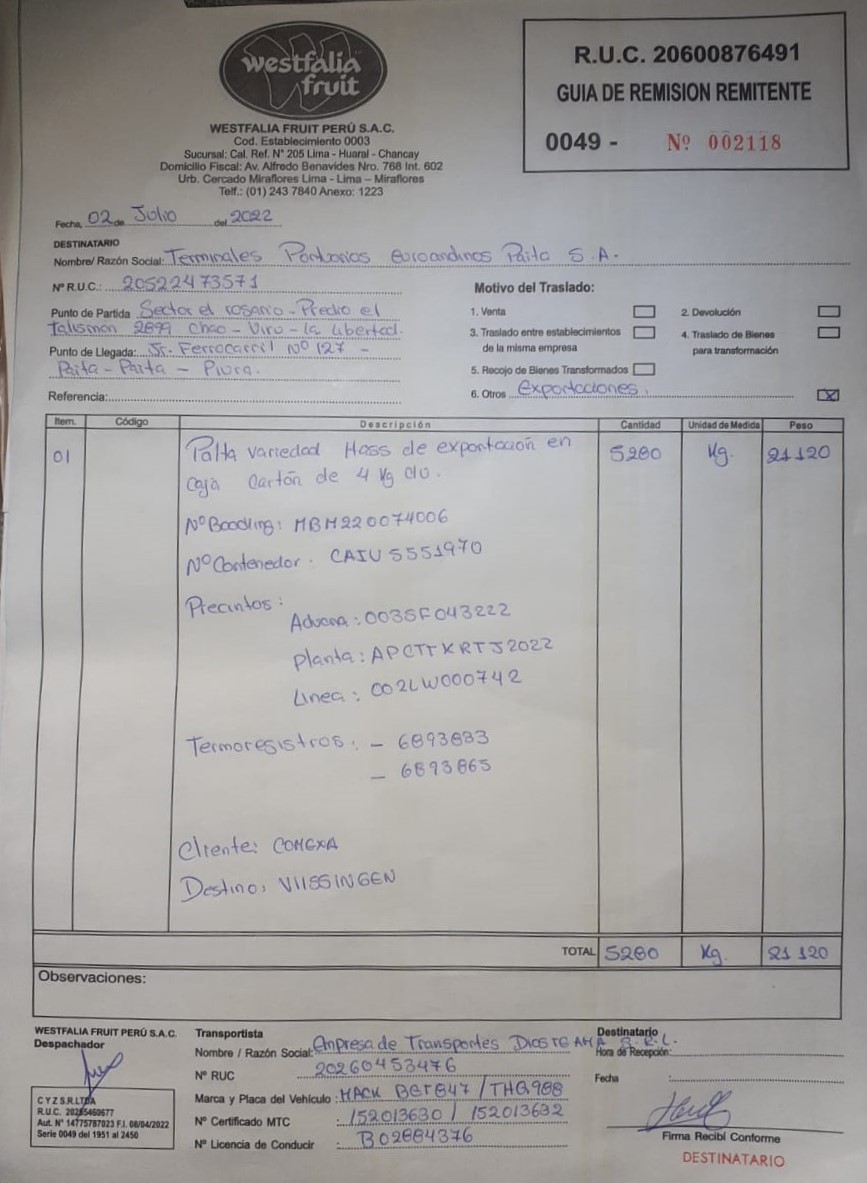 westfalia
fruit
WESTFALIA FRUIT PERÚ S.A.C.
Cod. Establecimiento 0003
Sucursal: Cal. Ref. N° 205 Lima - Huaral - Chancay
Domicilio Fiscal: Av. Alfredo Benavides Nro. 768 Int. 602
Urb. Cercado Miraflores Lima - Lima – Miraflores
Telf.: (01) 243 7840 Anexo: 1223
R.U.C. 20600876491
GUIA DE REMISION REMITENTE
0049 - Nº 002118
Fecha, 02 de Julio del 2022
DESTINATARIO
Nombre/ Razón Social: Terminales Portuarios Euroandinos Paita S.A.
Nº R.U.C.: 20522473571
Punto de Partida Sector el rosario - Predio el
Talisman 2899 Chao - Viru - la libertad.
Punto de Llegada: Jr. Ferrocarril Nº 127 -
Paita - Paita - Piura.
Referencia:
Motivo del Traslado:
1. Venta
2. Devolución
3. Traslado entre establecimientos
de la misma empresa
4. Traslado de Bienes
para transformación
5. Recojo de Bienes Transformados
6. Otros Exportaciones. X
Item. Código Descripción Cantidad Unidad de Medida Peso
01 Palta variedad Hass de exportación en 5280 Kg. 21 120
caja Cartón de 4 Kg c/u.
Nº Boocling: MBM220074006
Nº Contenedor: CAIU 5551970
Precintos:
Aduana: 0035F043222
Planta: APCTFKRTJ2022
Linea: 002LW000742
Termoresistros: - 6893883
- 6893865
Cliente: COMEXA
Destino: VlISSINGEN
TOTAL 5280 Kg. 21 120
Observaciones:
WESTFALIA FRUIT PERÚ S.A.C.
Despachador
C Y Z S.R.LTDA
R.U.C. 20255460677
Aut. N° 14775787023 F.I. 08/04/2022
Serie 0049 del 1951 al 2450
Transportista
Nombre / Razón Social: Empresa de Transportes DIOSTEAMA S.R.L.
Nº RUC 20260453476
Marca y Placa del Vehículo: MACK BBT847 / THQ988
Nº Certificado MTC : 152013630 / 152013632
Nº Licencia de Conducir : B02884376
Destinatario
Hora de Recepción:
Fecha :
Firma Recibí Conforme
DESTINATARIO